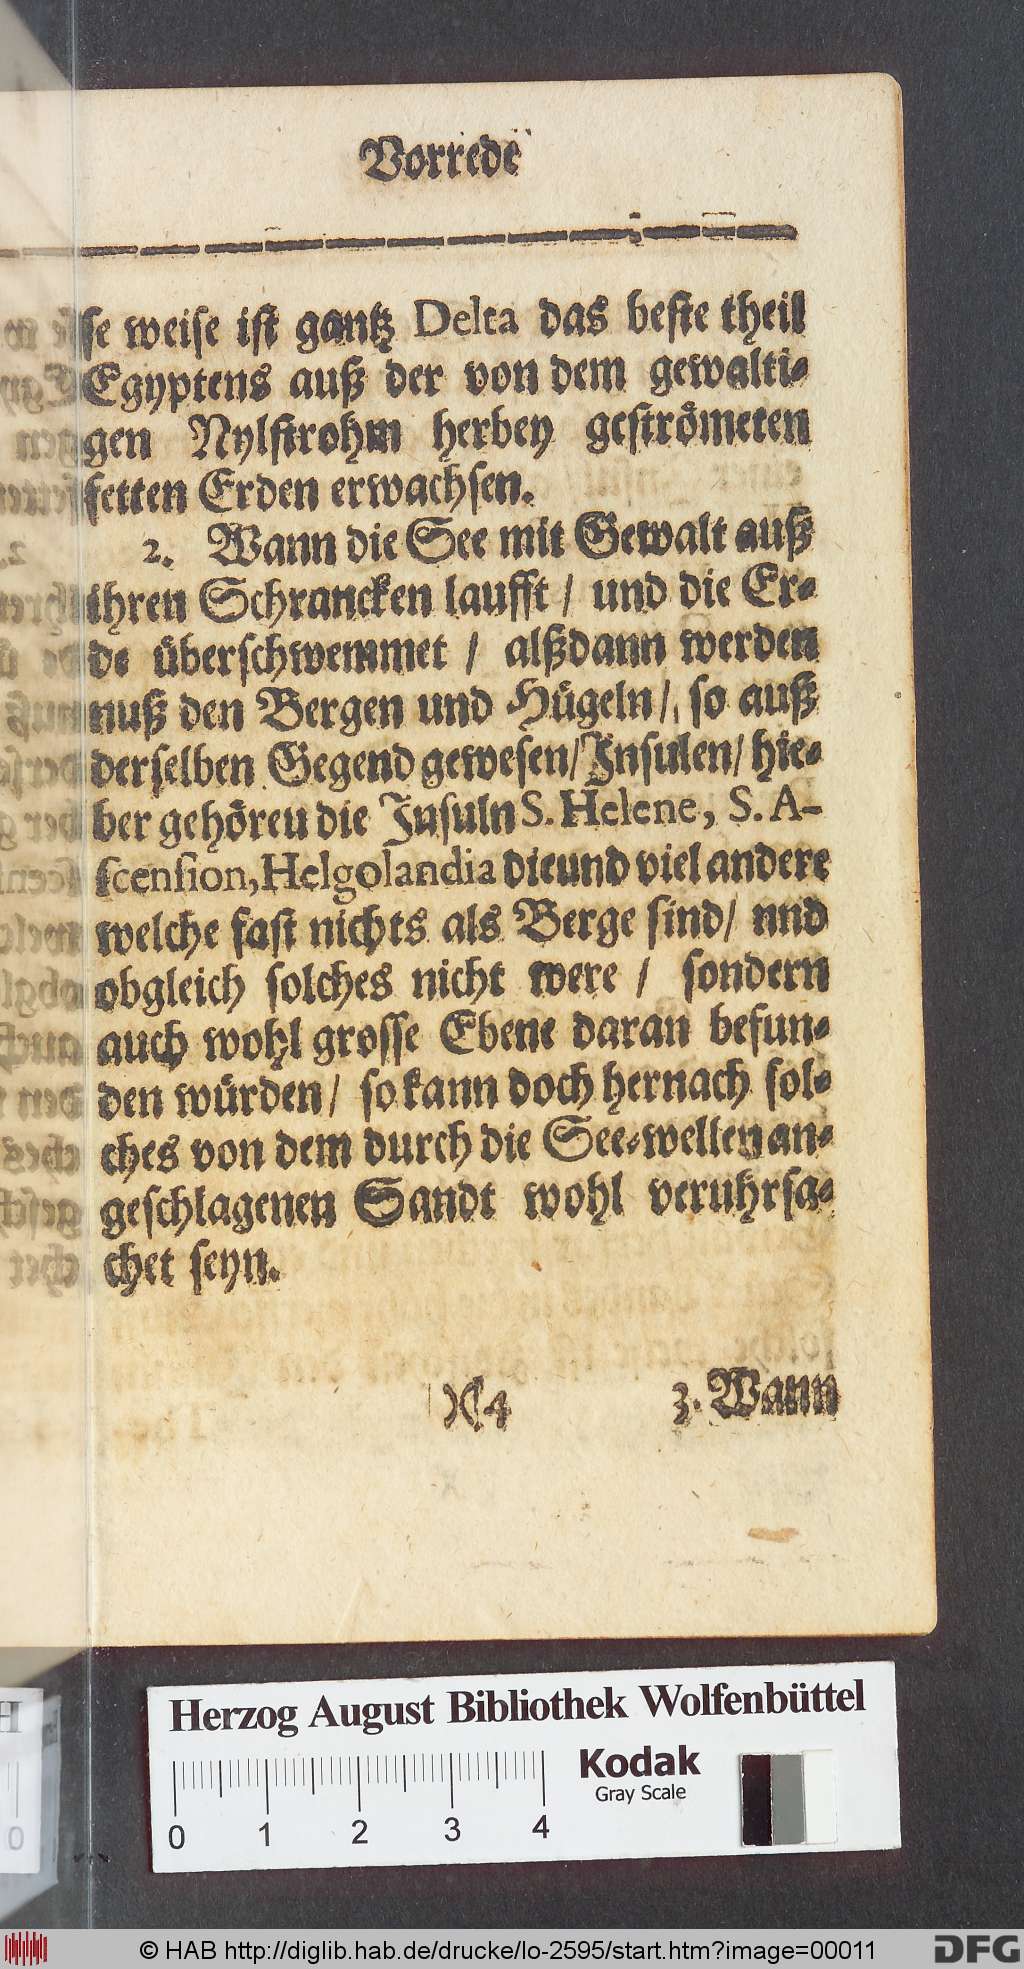 Vorrede
se weise ist gantz Delta das beste theil
Egyptens auß der von dem gewalti-
gen Nylstrohm herbey geströmeten
fetten Erden erwachsen.
2. Wann die See mit Gewalt auß
ihren Schrancken laufft / und die Er-
de überschwemmet / alßdann werden
nuß den Bergen und Hügeln / so auß
derselben Gegend gewesen / Insulen / hie-
ber gehöreu die Jusuln S. Helene, S. A-
scension, Helgolandia die und viel andere
welche fast nichts als Berge sind / nnd
obgleich solches nicht were / sondern
auch wohl grosse Ebene daran befun-
den würden / so kann doch hernach sol-
ches von dem durch die See-wellen an-
geschlagenen Sandt wohl veruhrsa-
chet seyn.
)( 4 3. Wann
Herzog August Bibliothek Wolfenbüttel
Kodak
Gray Scale
0 1 2 3 4
© HAB http://diglib.hab.de/drucke/lo-2595/start.htm?image=00011
DFG